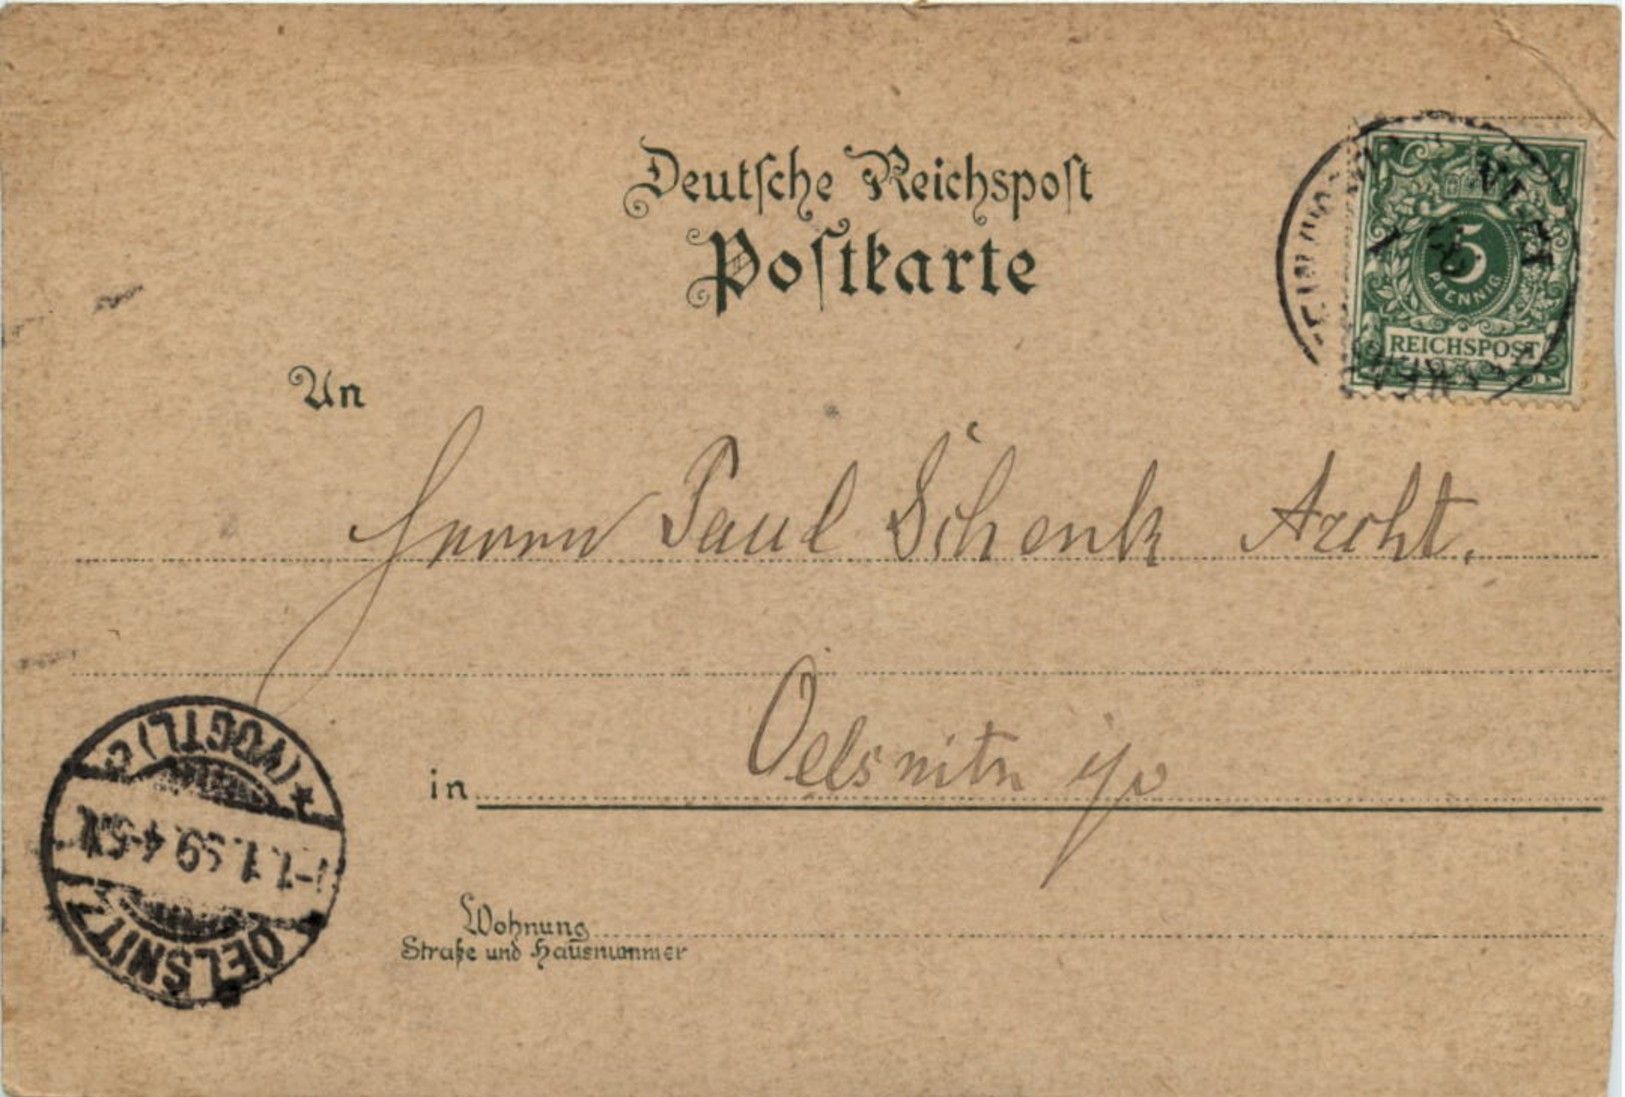 Deutsche Reichspost
Postkarte
5
PFENNIG
REICHSPOST
An
Herrn Paul Schenk Archt.
in Oelsnitz i/v
Wohnung
Straße und Hausnummer
OELSNITZ
1.1.99. 4-5N.
* (VOGTL) c